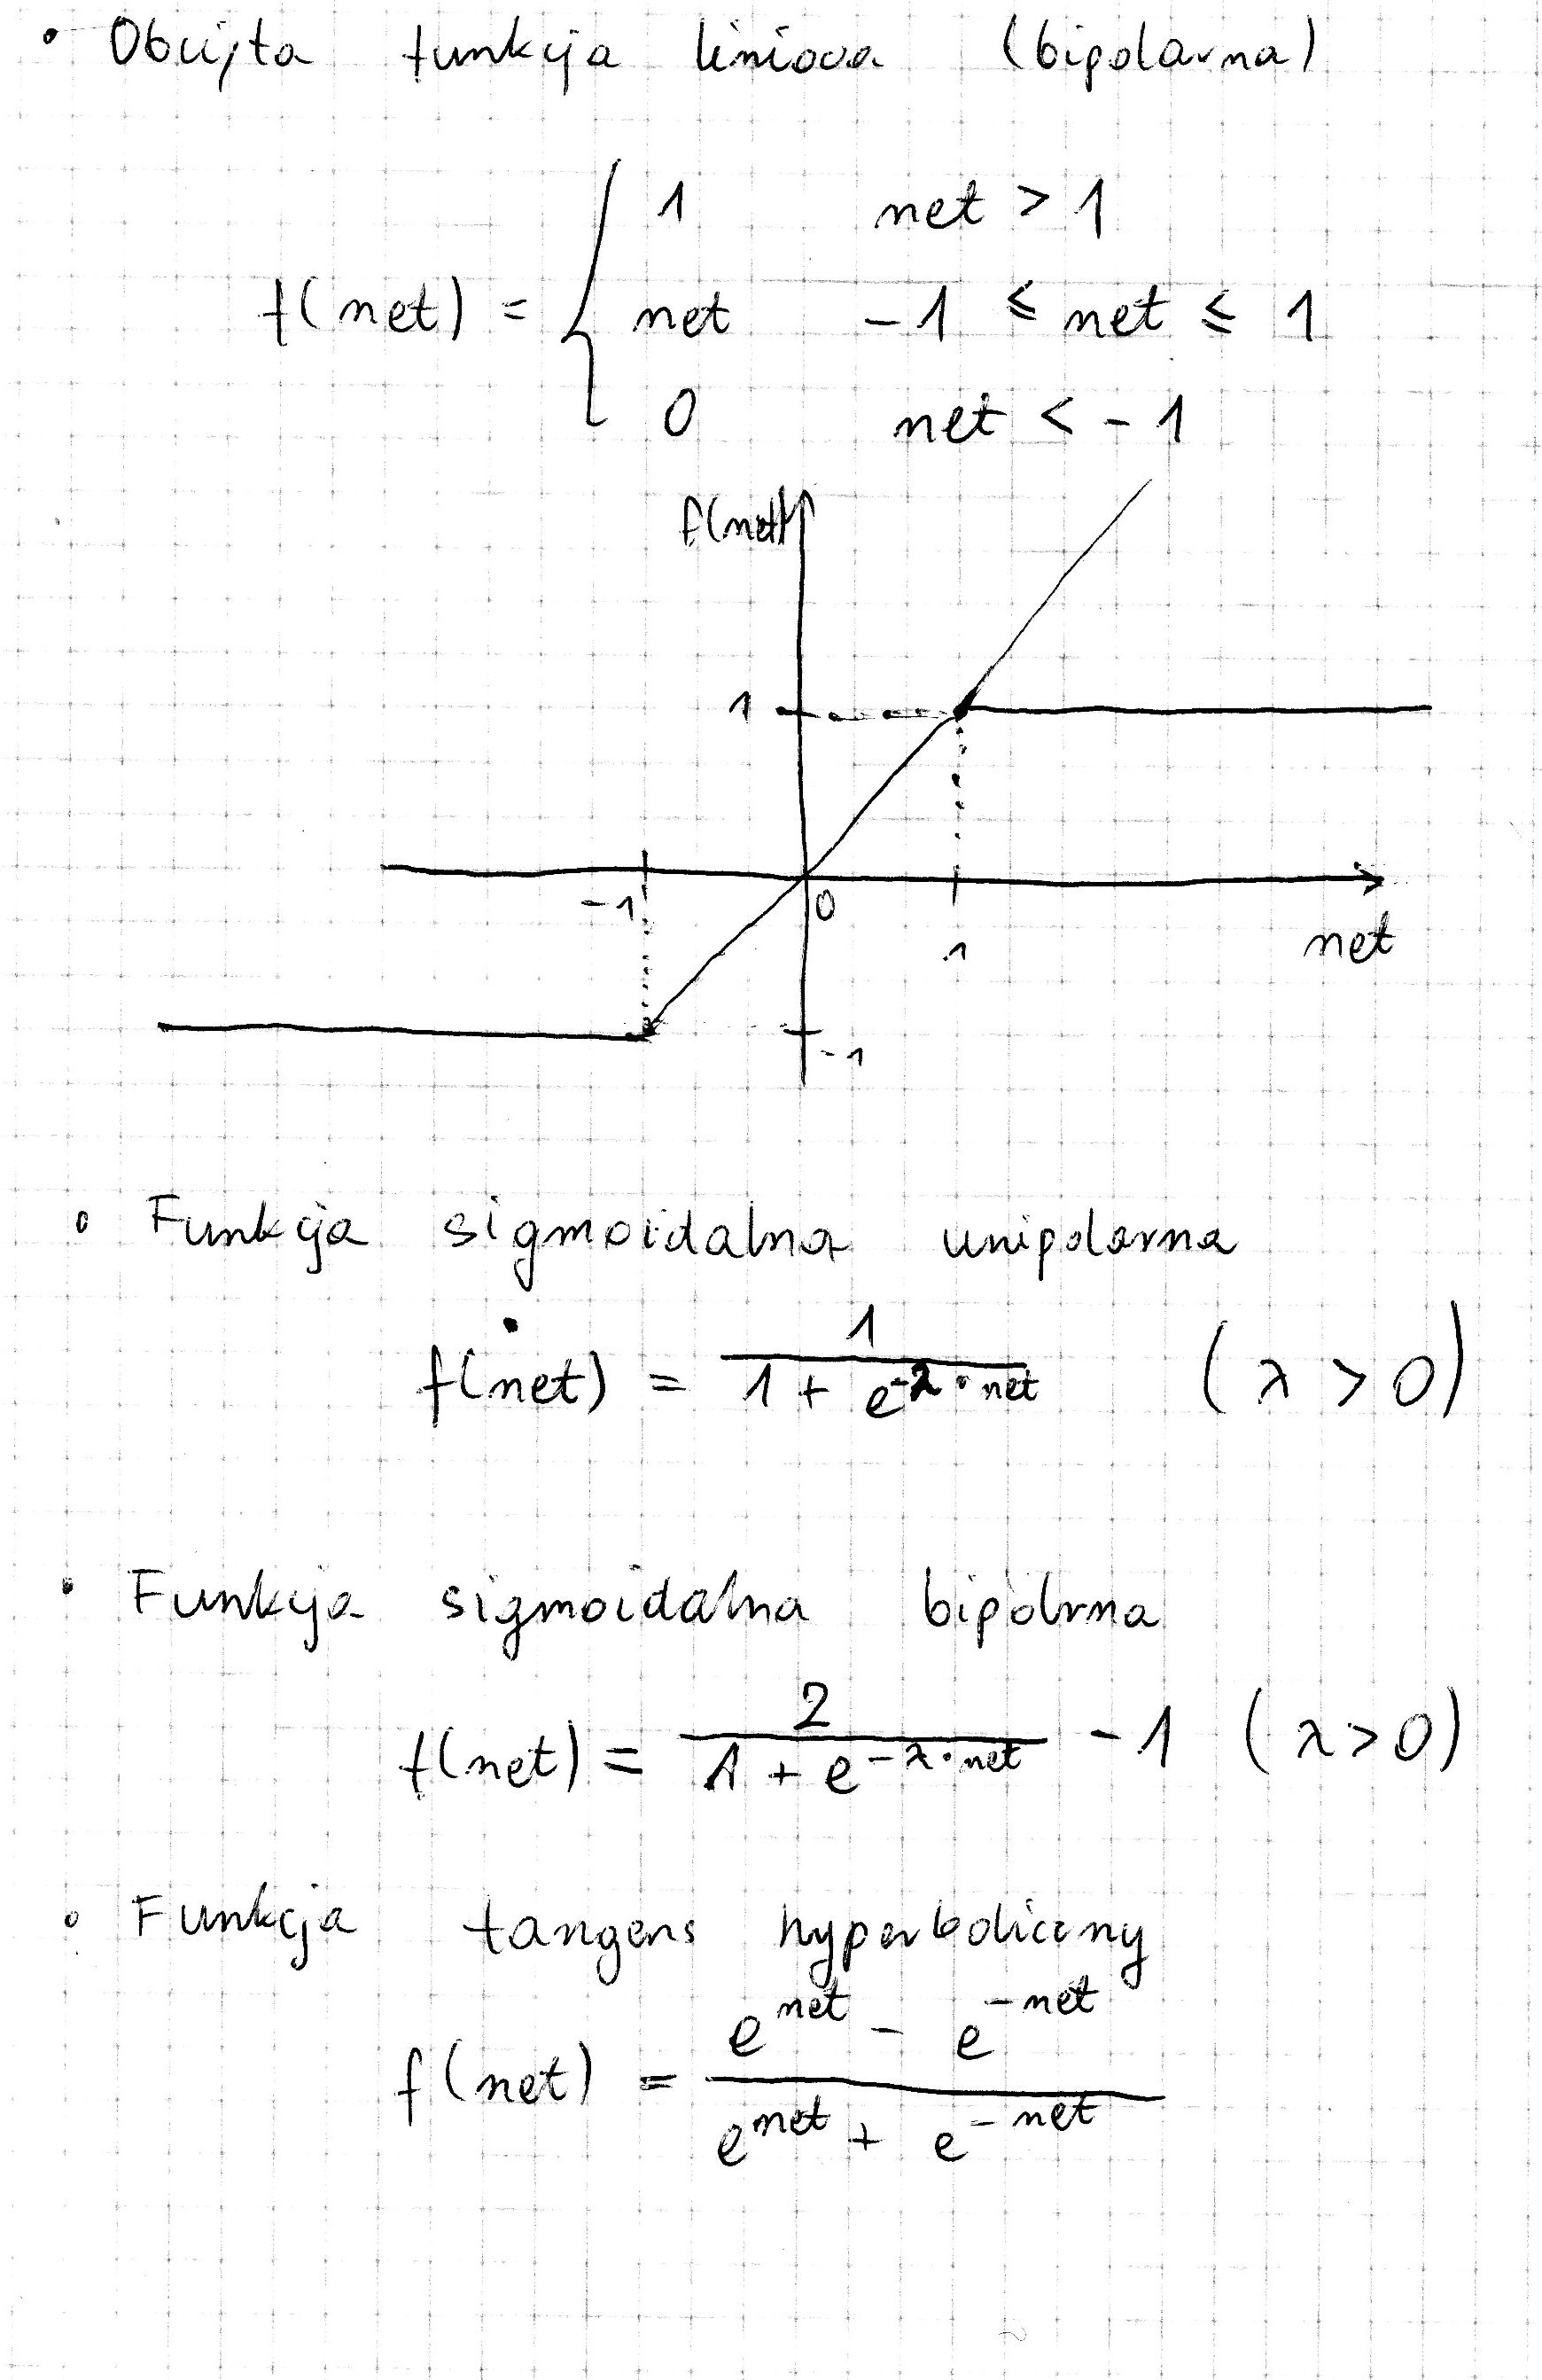 • Obcięta funkcja liniowa (bipolarna)
1 net > 1
f(net) = { net -1 ≤ net ≤ 1
0 net < -1
f(net)
1
-1 0 1
net
-1
• Funkcja sigmoidalna unipolarna
f(net) = 1 / (1 + e^(-λ·net)) (λ > 0)
• Funkcja sigmoidalna bipolrna
f(net) = 2 / (1 + e^(-λ·net)) - 1 (λ > 0)
• Funkcja tangens hyperboliczny
f(net) = (e^net - e^-net) / (e^net + e^-net)